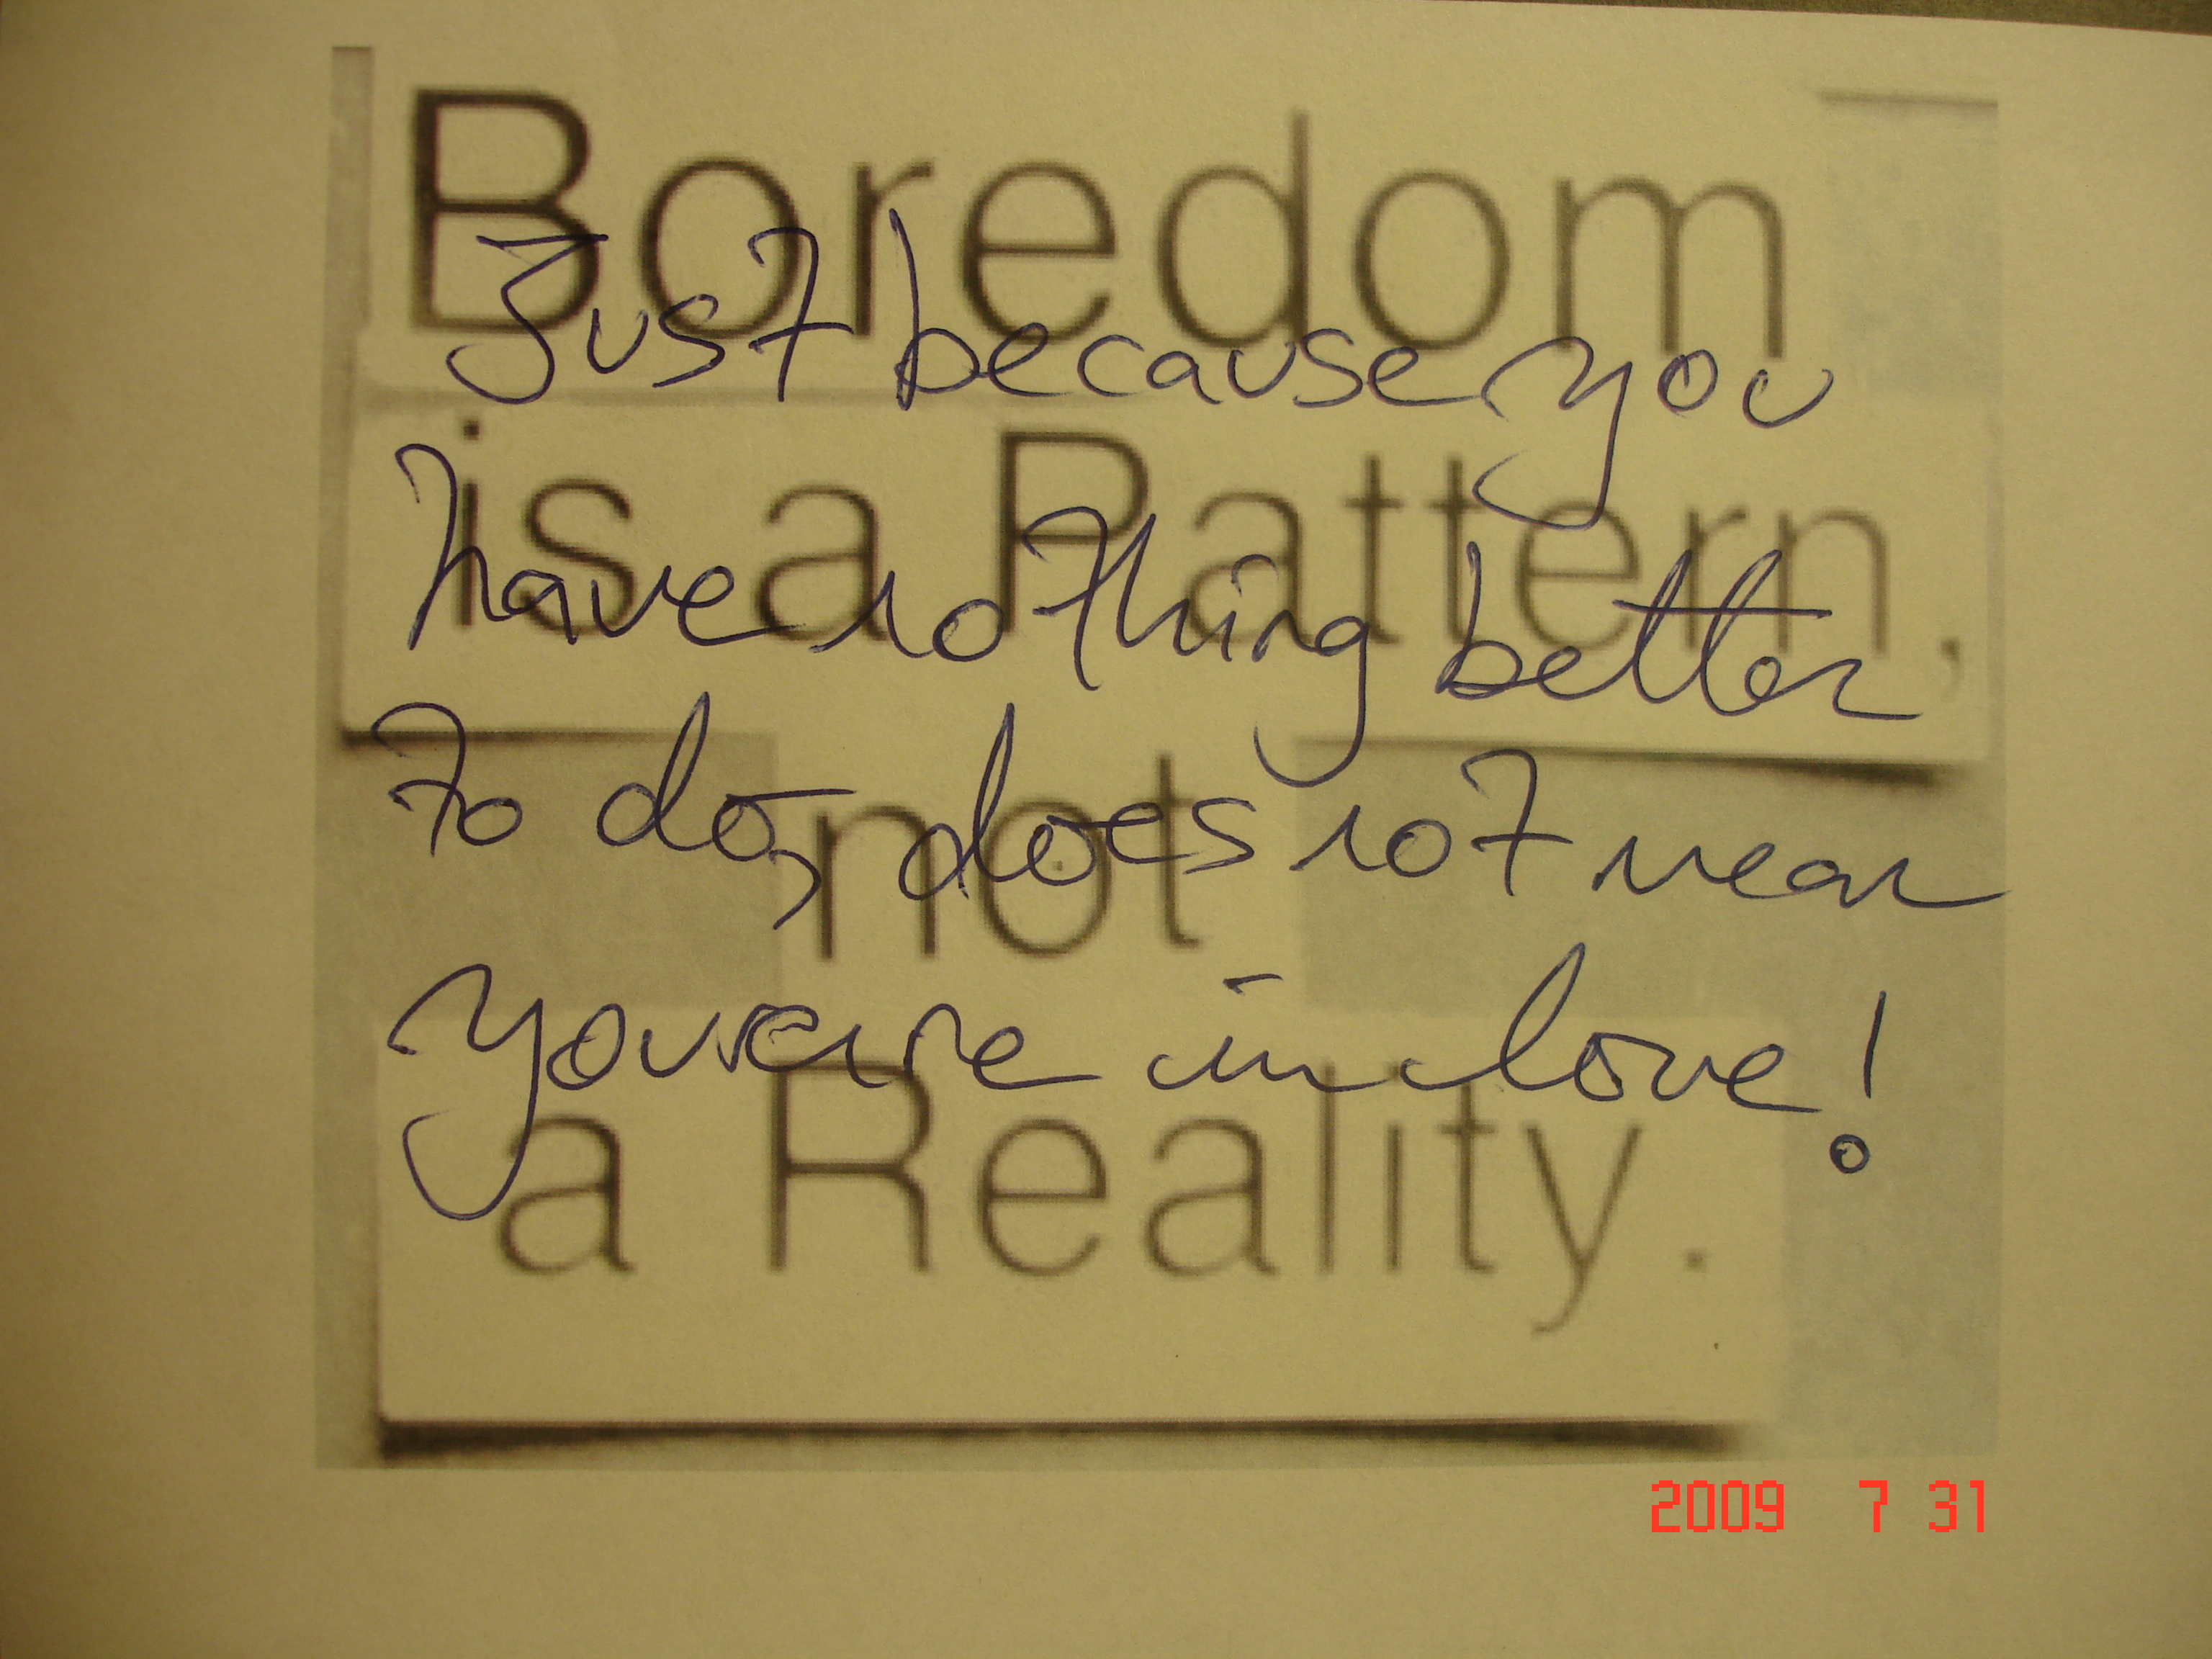 Boredom
is a Pattern,
not
a Reality.
Just because you
have nothing better
to do, does not mean
you are in love!
2009 7 31